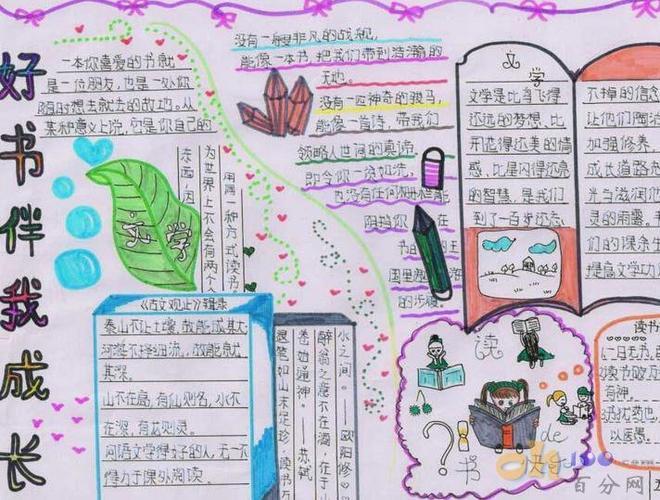 好书伴我成长
一本你喜爱的书就
是一位朋友，也是一处你
随时想去就去的故地。从
某种意义上说，它是你自己的
东西，因
为世界上不会有两个人
用同一种方式读书
文学
没有一艘非凡的战舰，
能像一本书，把我们带到浩瀚的
天地。
没有一匹神奇的骏马，
能像一首诗，带我们
领略人世间的真谛
即令你一贫如洗，
也没有任何栅栏能
阻挡你在
书的王
国里遨游
的步履
文学
文学是比鸟飞得
还远的梦想，比
开花得还美的情
感，比星闪得还亮
的智慧，是我们
到了一百岁还忘
不掉的信念
让他们陶冶
加强修养，
成长道路充
光当滋润他
灵的雨露。
们的课余生
提高文学功
《古文观止》辑录
泰山不让土壤，故能成其大
河海不择细流，故能就
其深。
山不在高，有仙则名，水不
在深，有龙则灵。
问语文学得好的人，无一不
得力于课外阅读。
水之间。——欧阳修
醉翁之意不在酒，在于山
卷如通神。——苏轼
退笔如山未足珍，读书万
读
书
de
快
读书
百分网